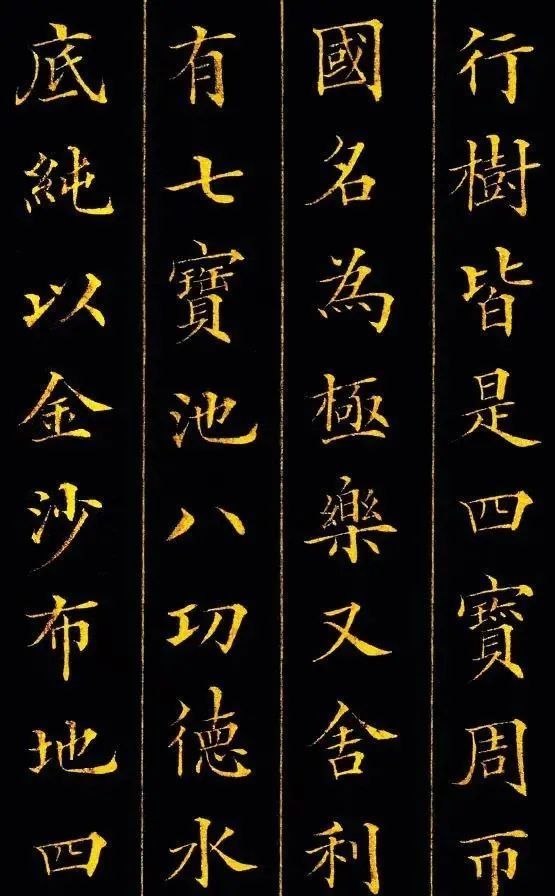 行樹皆是四寶周帀
國名為極樂又舍利
有七寶池八功德水
底純以金沙布地四